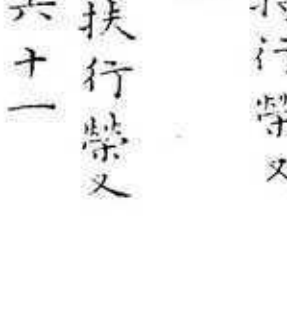 行榮又
扶行榮又
六十一